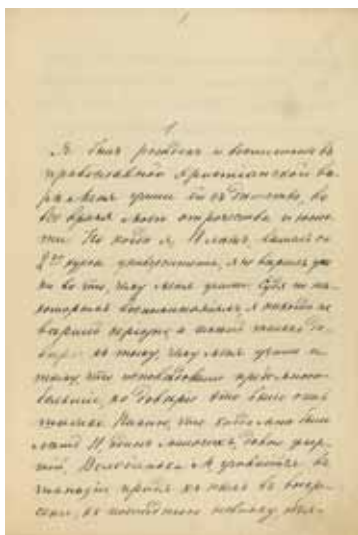 1
1.
Я былъ рожденъ и воспитанъ въ
православной христіанской вѣ-
рѣ. Меня учили ей съ дѣтства, во
все время моего отрочества и юно-
сти. Но когда я, 18 лѣтъ, вышелъ со
2го курса университета, я не вѣрилъ уже
ни во что, чему меня учили. Судя по нѣ-
которымъ воспоминаніямъ, я никогда не
вѣрилъ серьезно, а имѣлъ только до-
вѣріе къ тому, чему меня учили и
тому, что исповѣдовали предо мной
большіе, но довѣріе это было очень
шатко. Помню, что когда мнѣ было
лѣтъ 11, одинъ мальчикъ, давно умер-
шій, Володинька М. въ
гимназіи придя къ намъ въ воскре-
сенье, какъ послѣднюю новинку объя-